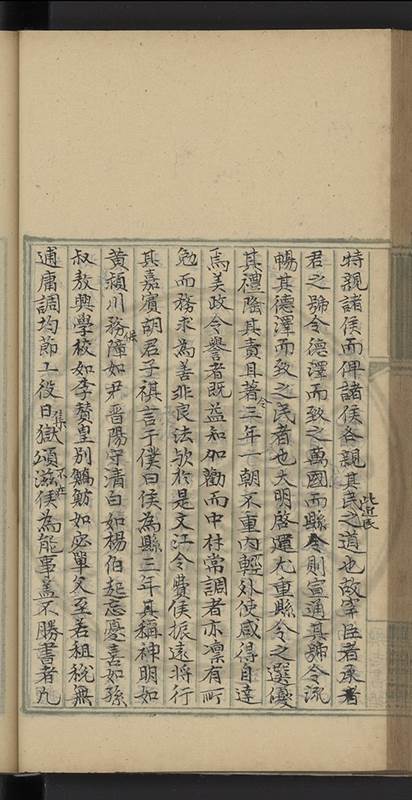 特親諸侯而俾諸侯各親其民之道也故宰臣者承
此近民
君之號令德澤而致之萬國而縣令則宣通其號令流
暢其德澤而致之民者也大明啓運尤重縣令之選優
其禮隆其責且著令三年一朝不重內輕外使咸得自達
焉美政令譽者既益知勸而中材常調者亦凛有所
勉而務求為善非良法歟於是文江令費侯振遠將行
其嘉賓胡君子祺言于僕曰侯為縣三年其稱神明如
黃潁川務障如尹晉陽守清白如楊伯起忘憂喜如孫
叔敖興學校如李贊皇別鷦魴如宓單父至若租稅無
逋庸調均節工役日集獄頌不在滋侯為能事盖不勝書者凡